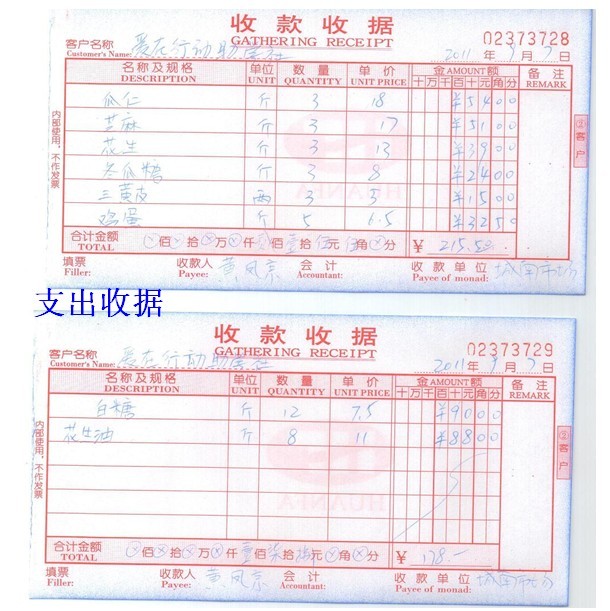 收款收据
GATHERING RECEIPT 02373728
客户名称 爱在行动助
Customer's Name: 2011年9月7日
名称及规格 单位 数量 单价 金AMOUNT额 备注
DESCRIPTION UNIT QUANTITY UNIT PRICE 十万千百十元角分 REMARK
瓜仁 斤 3 18 ¥5400
芝麻 斤 3 17 ¥5100
花生 斤 3 13 ¥3900
冬瓜糖 斤 3 8 ¥2400
三黄皮 两 3 5 ¥1500
鸡蛋 斤 5 6.5 ¥3250
内部使用,不作发票
②客户
HUANFA
合计金额 佰 拾 万 仟 佰 壹拾 伍元 角 分 ¥ 215.50
TOTAL
填票 收款人 黄凤京 会计 收款单位 城南市场
Filler: Payee: Accountant: Payee of monad:
支出收据
收款收据
GATHERING RECEIPT 02373729
客户名称 爱在行动助
Customer's Name: 2011年9月7日
名称及规格 单位 数量 单价 金AMOUNT额 备注
DESCRIPTION UNIT QUANTITY UNIT PRICE 十万千百十元角分 REMARK
白糖 斤 12 7.5 ¥9000
花生油 斤 8 11 ¥8800
内部使用,不作发票
②客户
HUANFA
合计金额 佰 拾 万 仟壹佰柒拾捌元 角 分 ¥ 178.—
TOTAL
填票 收款人 黄凤京 会计 收款单位 城南市场
Filler: Payee: Accountant: Payee of monad: